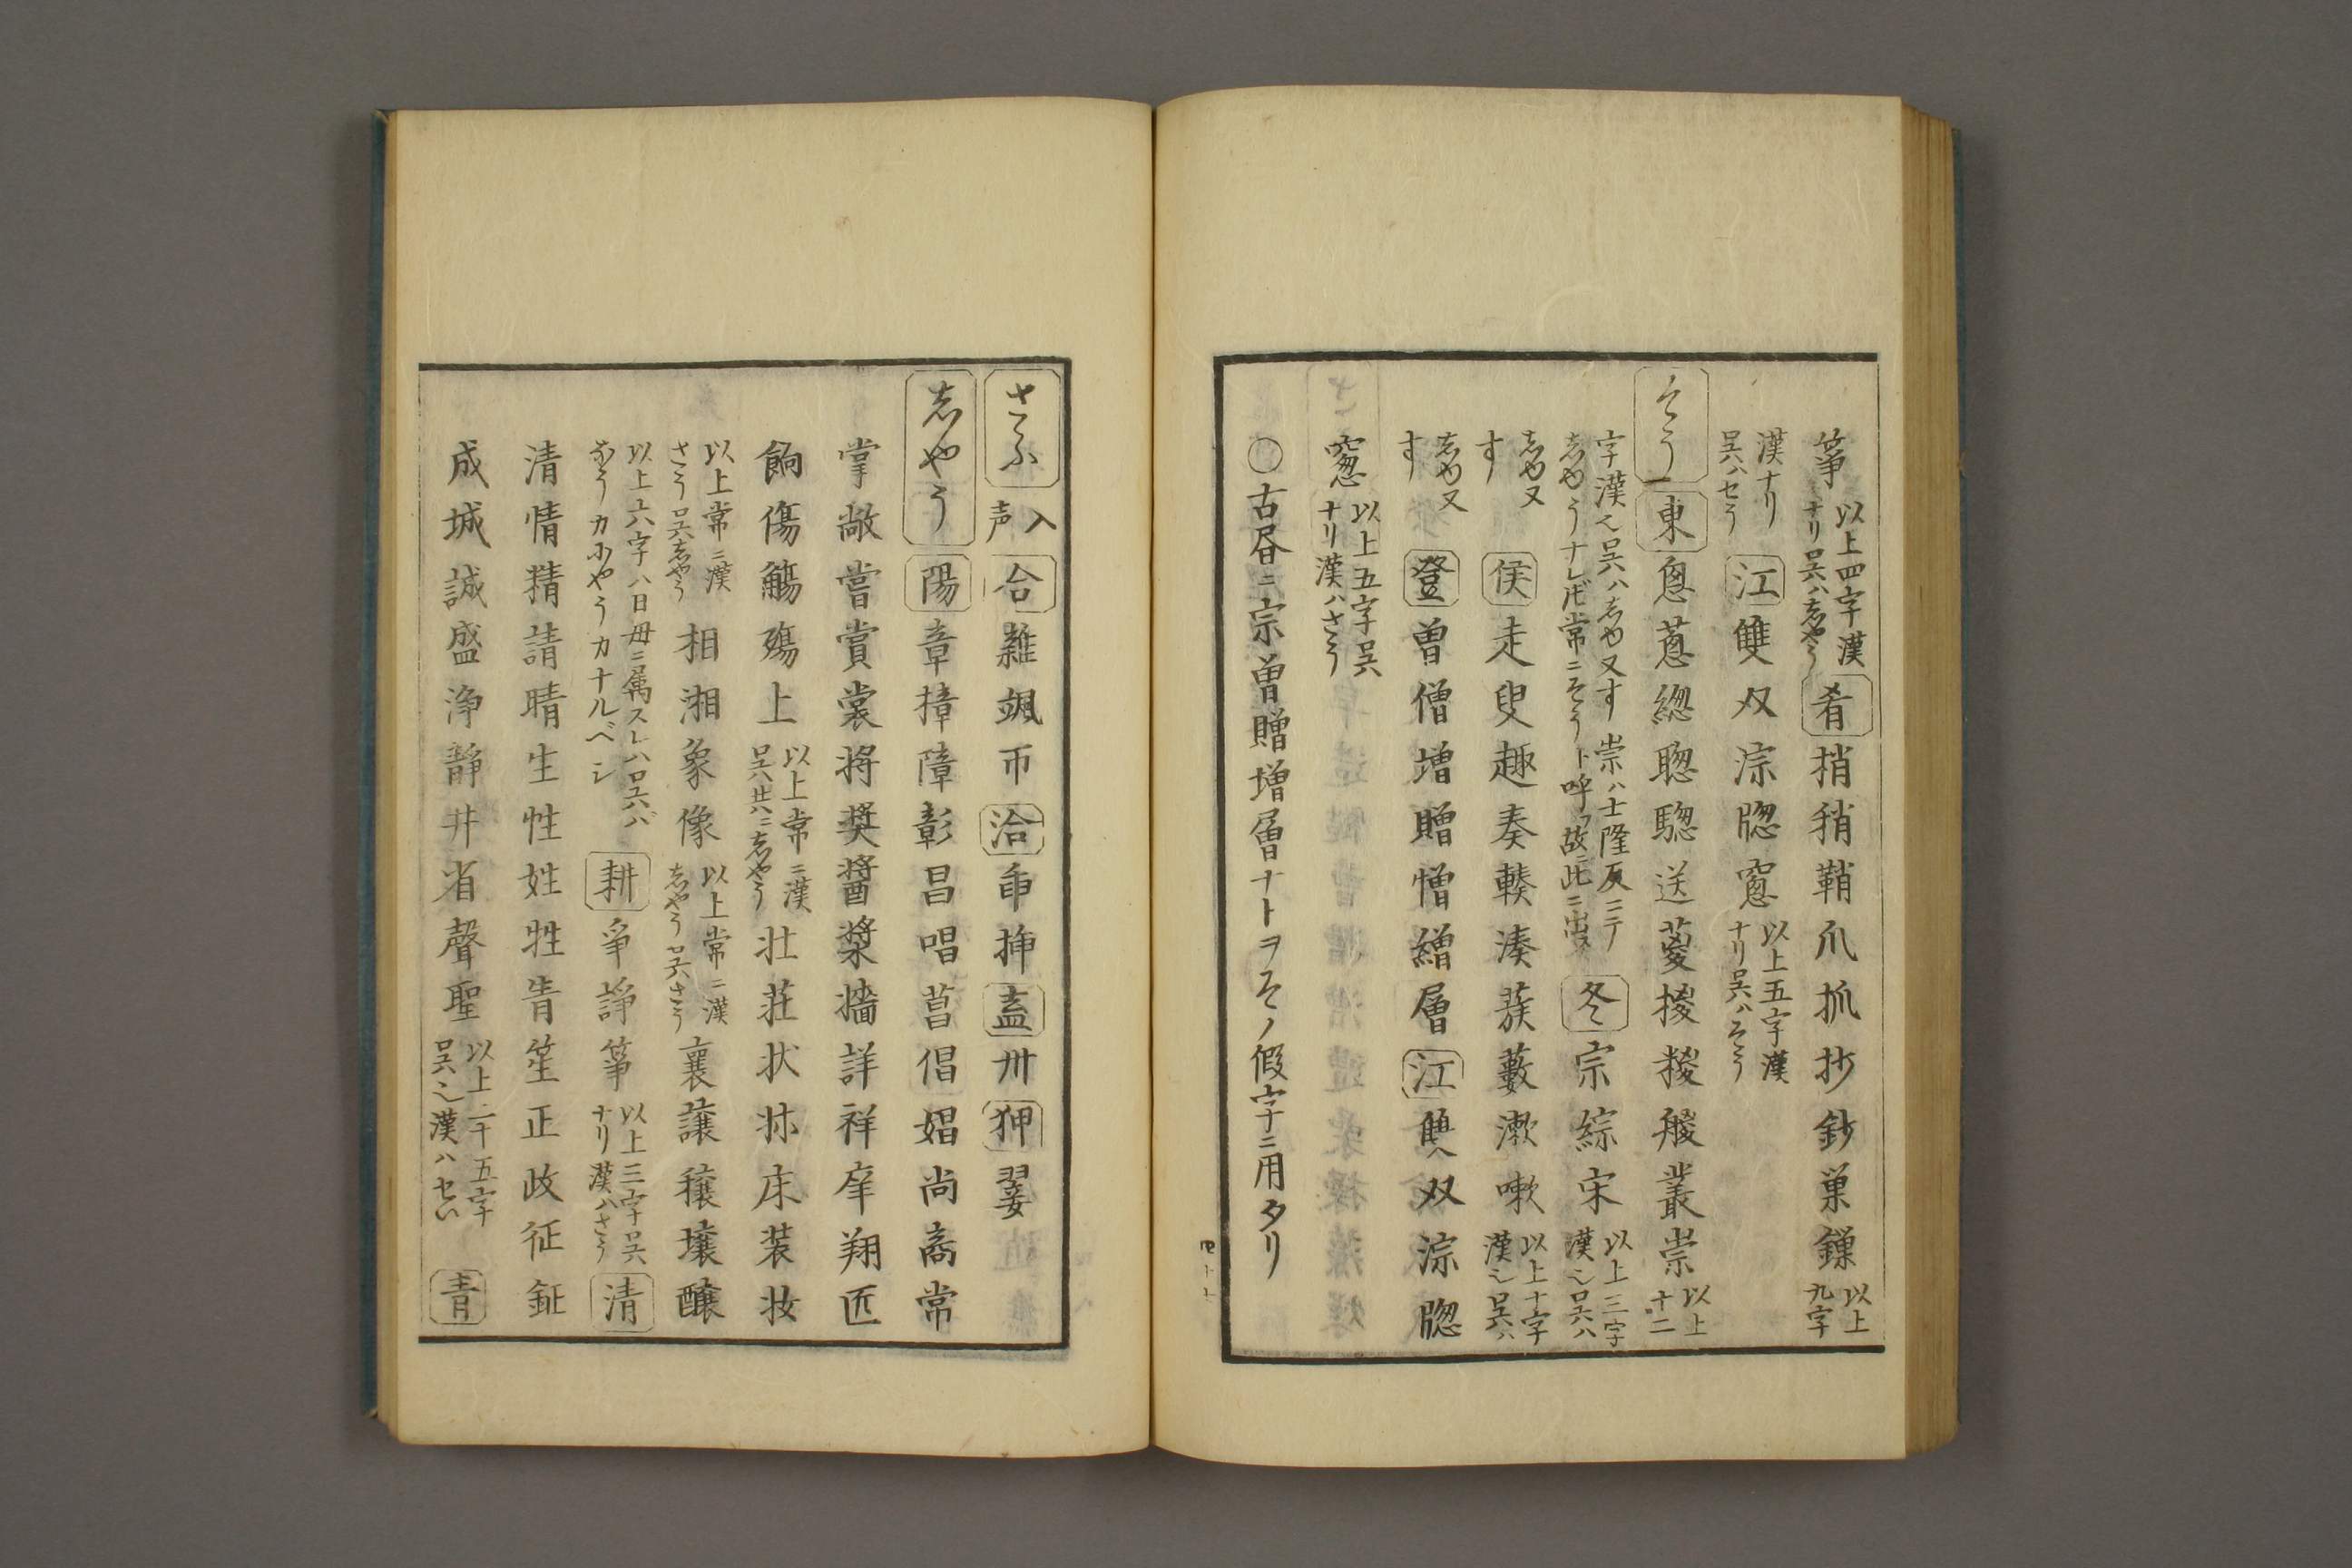 箏 以上四字漢ナリ呉ハ志やう 肴 捎 稍 鞘 爪 抓 抄 鈔 巣 鏁 以上九字
漢ナリ呉ハせう 江 雙 双 淙 牎 窻 以上五字漢ナリ呉ハそう
そう 東 怱 葱 総 聡 驄 送 葼 椶 糉 艐 叢 崇 以上十二
字漢也呉ハ志ゆ又す崇ハ士隆反ニテ志ゆうナレ𪜈常ニそうト呼フ故ニ此ニ出ス 冬 宗 綜 宋 以上三字漢也呉ハ
志ゆ又す 侯 走 叟 趣 奏 輳 湊 蔟 藪 漱 嗽 以上十字漢也呉ハ
志ゆ又す 登 曽 僧 増 贈 憎 繒 層 江 雙 双 淙 牎
窓 以上五字呉ナリ漢ハさう
〇古昏ニ宗曽贈増層ナトヲそノ假字ニ用タリ
四十七
さふ 入声 合 雜 颯 帀 洽 臿 挿 盍 卅 狎 翣
志やう 陽 章 樟 障 彰 昌 唱 菖 倡 娼 尚 商 常
掌 敞 嘗 賞 裳 将 奨 醤 漿 墻 詳 祥 庠 翔 匠
餉 傷 觴 殤 上 以上常ニ漢呉共ニ志やう 壮 荘 状 牀 床 装 妆
以上常ニ漢さう呉志やう 相 湘 象 像 以上常ニ漢志やう呉さう 襄 譲 穣 壌 釀
以上六字ハ日母ニ属スレハ呉ハなうカみやうカナルベシ 耕 争 諍 箏 以上三字呉ナリ漢ハさう 清
清 情 精 請 晴 生 性 姓 牲 眚 笙 正 政 征 鉦
成 城 誠 盛 浄 靜 井 省 聲 聖 以上二十五字呉也漢ハせい 青